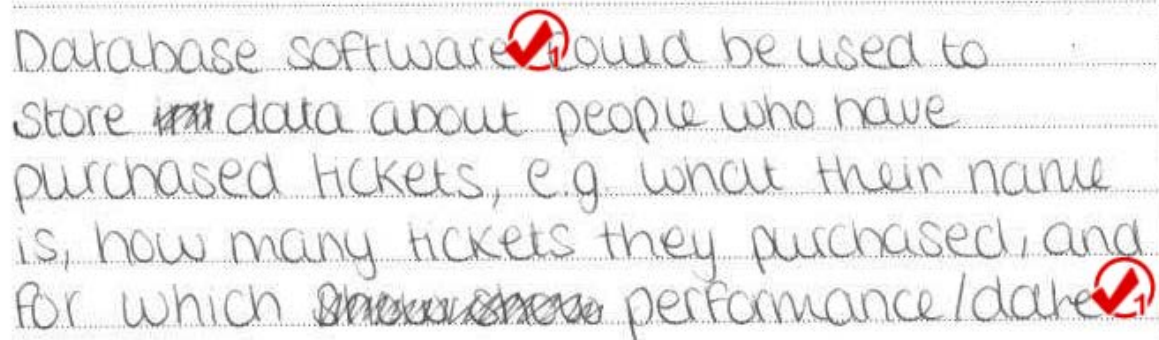 Database software could be used to
store data about people who have
purchased tickets, e.g. what their name
is, how many tickets they purchased, and
for which performance/date